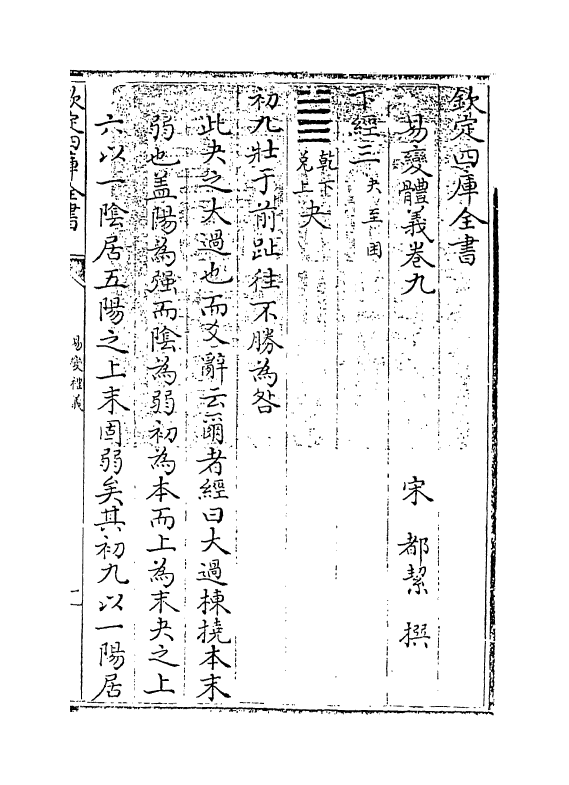 欽定四庫全書
易變體義卷九
宋 都絜 撰
下經三 夬至困
䷪ 乾下兌上 夬
初九壯于前趾往不勝為咎
此夬之大過也而爻辭云爾者經曰大過棟撓本末
弱也蓋陽為强而陰為弱初為本而上為末夬之上
六以一陰居五陽之上末固弱矣其初九以一陽居
欽定四庫全書
易變體義